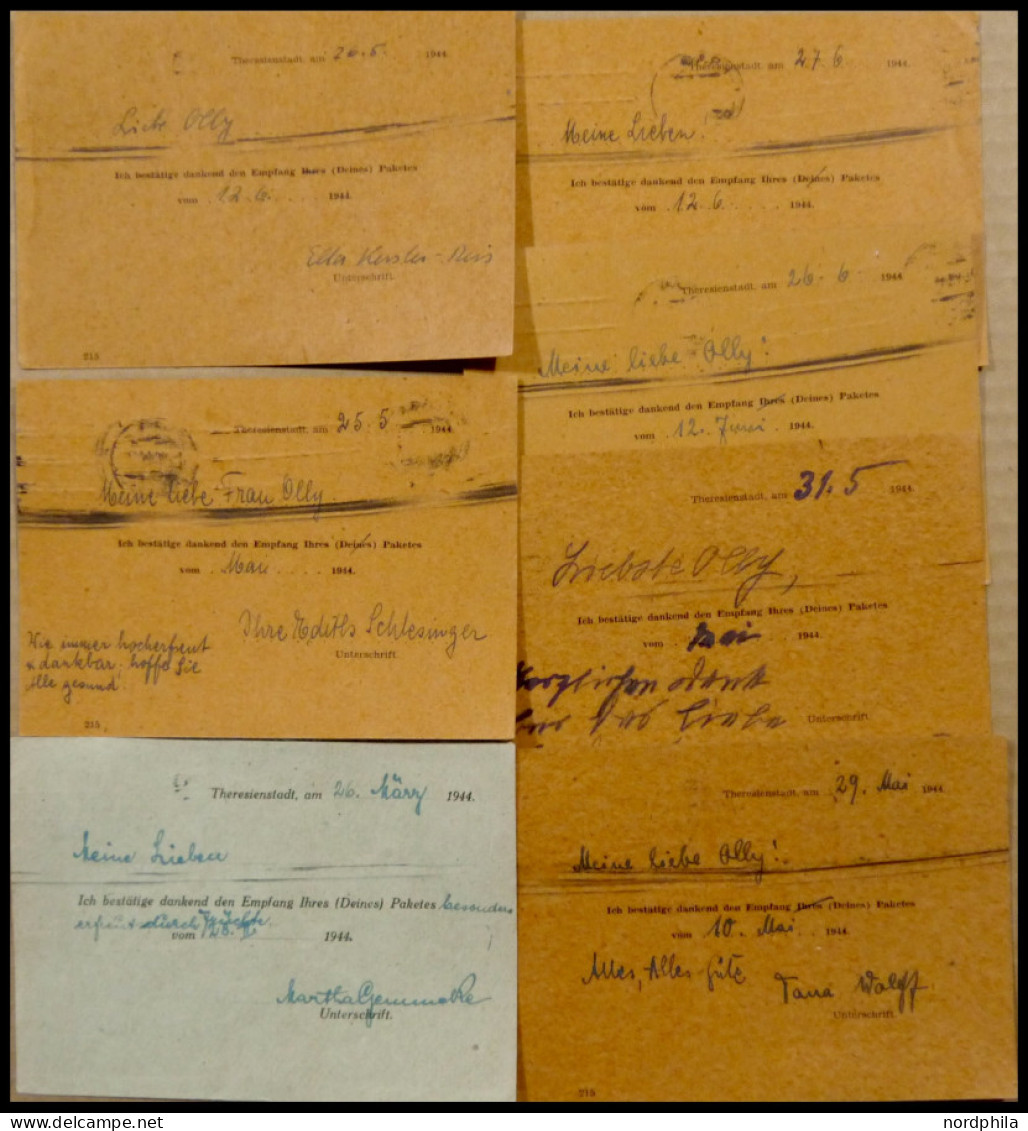 Theresienstadt, am 20.5. 1944.
Liebe Olly
Ich bestätige dankend den Empfang Ihres (Deines) Paketes
vom 12.6. 1944.
Ella
Unterschrift.
215
Theresienstadt, am 27.6. 1944.
Meine Lieben!
Ich bestätige dankend den Empfang Ihres (Deines) Paketes
vom 12.6. 1944.
Theresienstadt, am 26.6. 1944.
Meine liebe Olly!
Ich bestätige dankend den Empfang Ihres (Deines) Paketes
vom 12. Juni 1944.
Theresienstadt, am 25.5. 1944.
Meine liebe Frau Olly.
Ich bestätige dankend den Empfang Ihres (Deines) Paketes
vom 1944.
Ihre Edith Schlesinger
Unterschrift.
Wie immer hocherfreut
u dankbar, hoffe Sie
alle gesund.
215
Theresienstadt, am 31.5 1944.
Liebste Olly,
Ich bestätige dankend den Empfang Ihres (Deines) Paketes
vom Mai 1944.
Herzlichen Dank
für das Liebe
Unterschrift.
Theresienstadt, am 26. März 1944.
Meine Lieben
Ich bestätige dankend den Empfang Ihres (Deines) Paketes besonders
erfreut durch Früchte.
vom 1944.
Martha
Unterschrift.
Theresienstadt, am 29. Mai 1944.
Meine liebe Olly!
Ich bestätige dankend den Empfang Ihres (Deines) Paketes
vom 10. Mai 1944.
Alles, Alles Gute
Wolff
Unterschrift.
215
nordphila